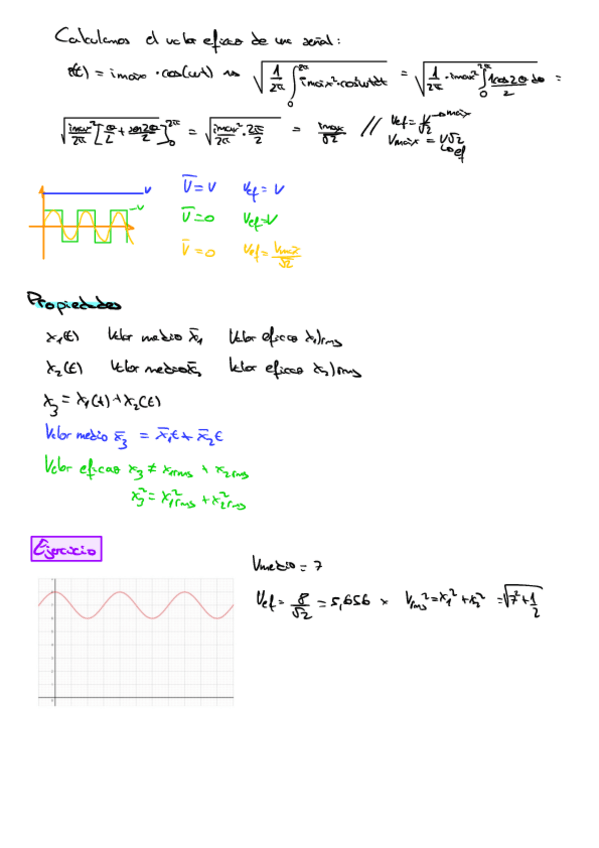 Calculamos el valor eficaz de una señal:
i(t) = imax · cos(ωt) → √(1/2π ∫₀^2π imax² · cos²ωt dt) = √(1/2π · imax² ∫₀^2π 1+cos2θ/2 dθ) =
√(imax²/2π [θ/2 + sen2θ/2]₀^2π) = √(imax²/2π · 2π/2) = imax/√2 // Vef = V/√2 → max
Vmáx = V√2
ef
V
V̅ = V Vef = V
V
V̅ = 0 Vef = V
V̅ = 0 Vef = Vmáx/√2
Propiedades
x₁(t) Valor medio x̅₁ Valor eficaz x₁)rms
x₂(t) Valor medio x̅₂ Valor eficaz x₂)rms
x₃ = x₁(t) + x₂(t)
Valor medio x̅₃ = x̅₁t + x̅₂t
Valor eficaz x₃ ≠ x₁rms + x₂rms
x₃² = x₁rms² + x₂rms²
Ejercicio
Vmedio = 7
Vef = 8/√2 = 5,656 × Vrms² = x₁² + x₂² = √(7² + 1/2)